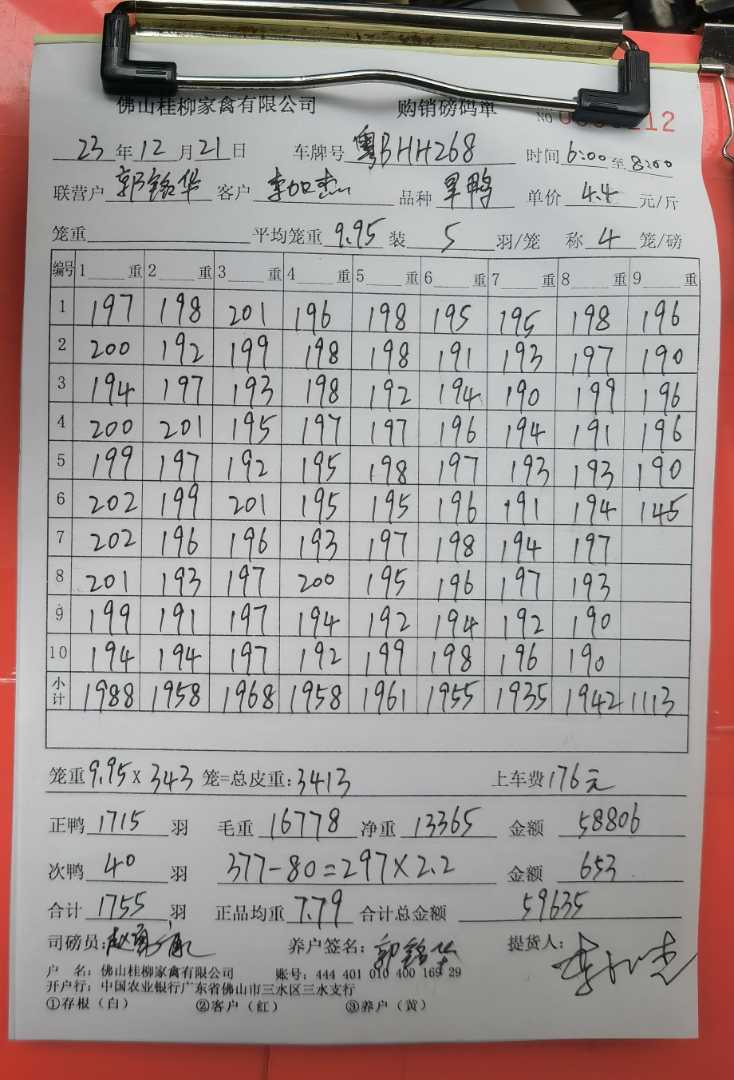 佛山桂柳家禽有限公司 购销磅码单 NO
23年12月21日 车牌号 粤BHH268 时间6:00至8:00
联营户 郭铭华 客户 李加杰 品种 旱鸭 单价 4.4 元/斤
笼重 平均笼重 9.95 装 5 羽/笼 称 4 笼/磅
编号 1 重 2 重 3 重 4 重 5 重 6 重 7 重 8 重 9 重
1 197 198 201 196 198 195 195 198 196
2 200 192 199 198 198 191 193 197 190
3 194 197 193 198 192 194 190 199 196
4 200 201 195 197 197 196 194 191 196
5 199 197 192 195 198 197 193 193 190
6 202 199 201 195 195 196 191 194 145
7 202 196 196 193 197 198 194 197
8 201 193 197 200 195 196 197 193
9 199 191 197 194 192 194 192 190
10 194 194 197 192 199 198 196 190
小计 1988 1958 1968 1958 1961 1955 1935 1942 1113
笼重9.95×343笼=总皮重:3413 上车费176元
正鸭 1715 羽 毛重 16778 净重 13365 金额 58806
次鸭 40 羽 377-80=297×2.2 金额 653
合计 1755 羽 正品均重 7.79 合计总金额 59635
司磅员: 养户签名: 郭铭华 提货人: 李加杰
户 名: 佛山桂柳家禽有限公司 账号: 444 401 010 400 169 29
开户行: 中国农业银行广东省佛山市三水区三水支行
①存根（白） ②客户（红） ③养户（黄）